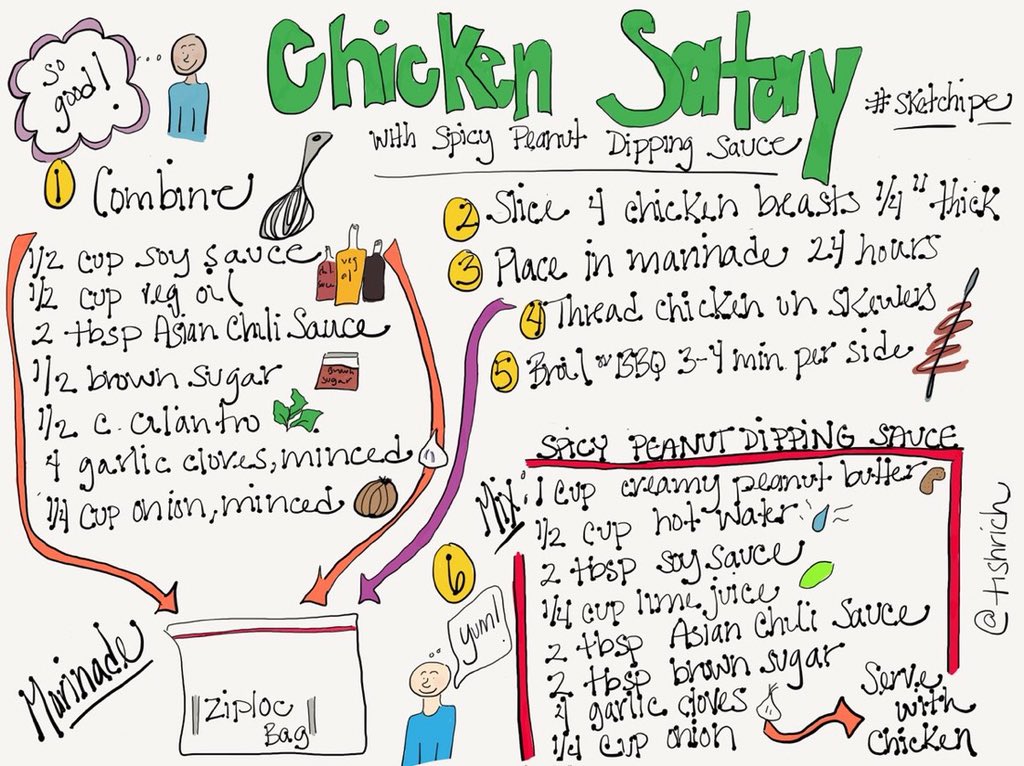 So good!
Chicken Satay
#sketchipe
with Spicy Peanut Dipping Sauce
1 Combine
1/2 cup soy sauce
1/2 cup veg oil
2 tbsp Asian Chili Sauce
1/2 brown sugar
1/2 c. cilantro
4 garlic cloves, minced
1/4 cup onion, minced
veg oil
Brown sugar
2 Slice 4 chicken breasts 1/4" thick
3 Place in marinade 24 hours
4 Thread chicken on skewers
5 Broil or BBQ 3-4 min per side
Marinade
Ziploc Bag
6
Yum!
SPICY PEANUT DIPPING SAUCE
Mix:
1 cup creamy peanut butter
1/2 cup hot water
2 tbsp soy sauce
1/4 cup lime juice
2 tbsp Asian Chili Sauce
2 tbsp brown sugar
4 garlic cloves
1/4 cup onion
Serve with Chicken
@tishrich